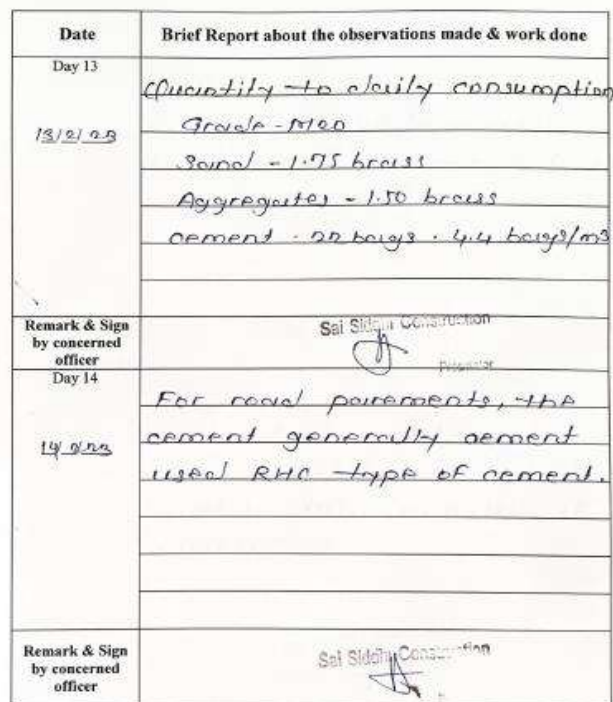 Date
Brief Report about the observations made & work done
Day 13
13/2/23
Quantity to daily consumption
Grade - M20
Sand - 1.75 brass
Aggregates - 1.50 brass
cement - 22 bags - 4.4 bags/m3
Remark & Sign
by concerned
officer
Sai Siddhi Construction
Proprietor
Day 14
14/2/23
For road pavements, the
cement generally cement
used RHC type of cement.
Remark & Sign
by concerned
officer
Sai Siddhi Construction